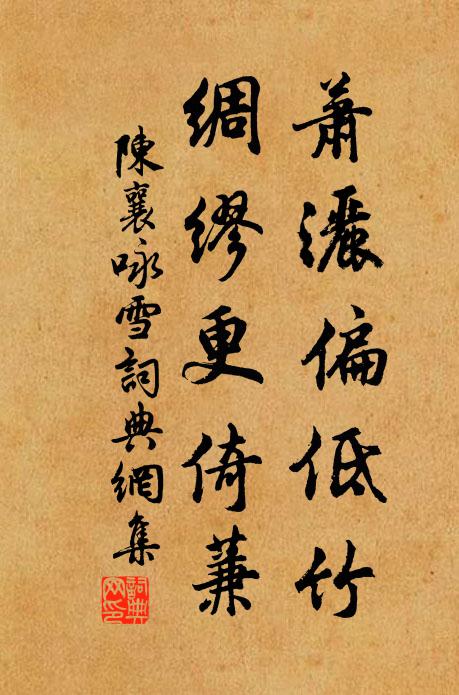 蕭灑偏低竹
綢繆更倚蒹
陳襄咏雪詞典網集
詞典网印